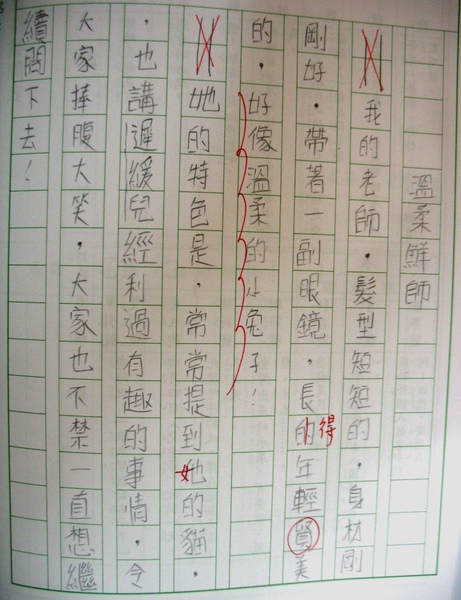 溫柔鮮師
我的老師,髮型短短的,身材剛
剛好,帶著一副眼鏡,長的得年輕美
的,好像溫柔的小兔子!
她的特色是,常常提到她的貓,
,也講遲緩兒經利過有趣的事情,令
大家捧腹大笑,大家也不禁一直想繼
續問下去!